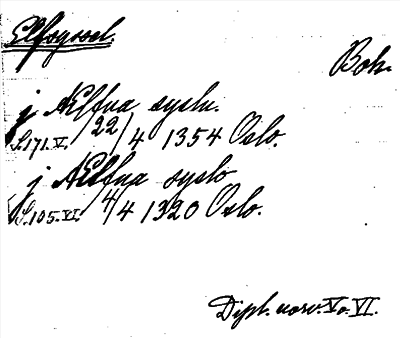 Elfsyssel.
Boh.
j Ælfua syslu.
S.171. V. 22/4 1354 Oslo.
j Ælfua syslo
S.105. VI. 4/4 1320 Oslo.
Dipl. norv. V o. VI.